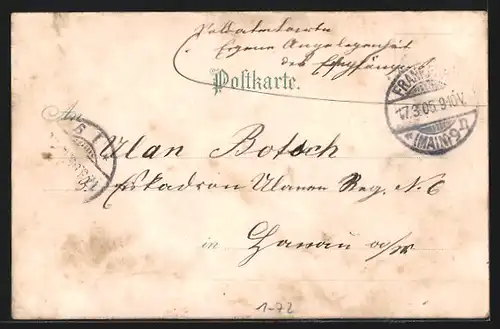 Soldatenkarte
Eigene Angelegenheit
des Empfängers
Postkarte.
FRANKFURT
17.3.05.9-10V.
* (MAIN) 9 n
An
Ulan Botsch
Eskadron Ulanen Reg. N. 6
in Hanau a/M
1-72